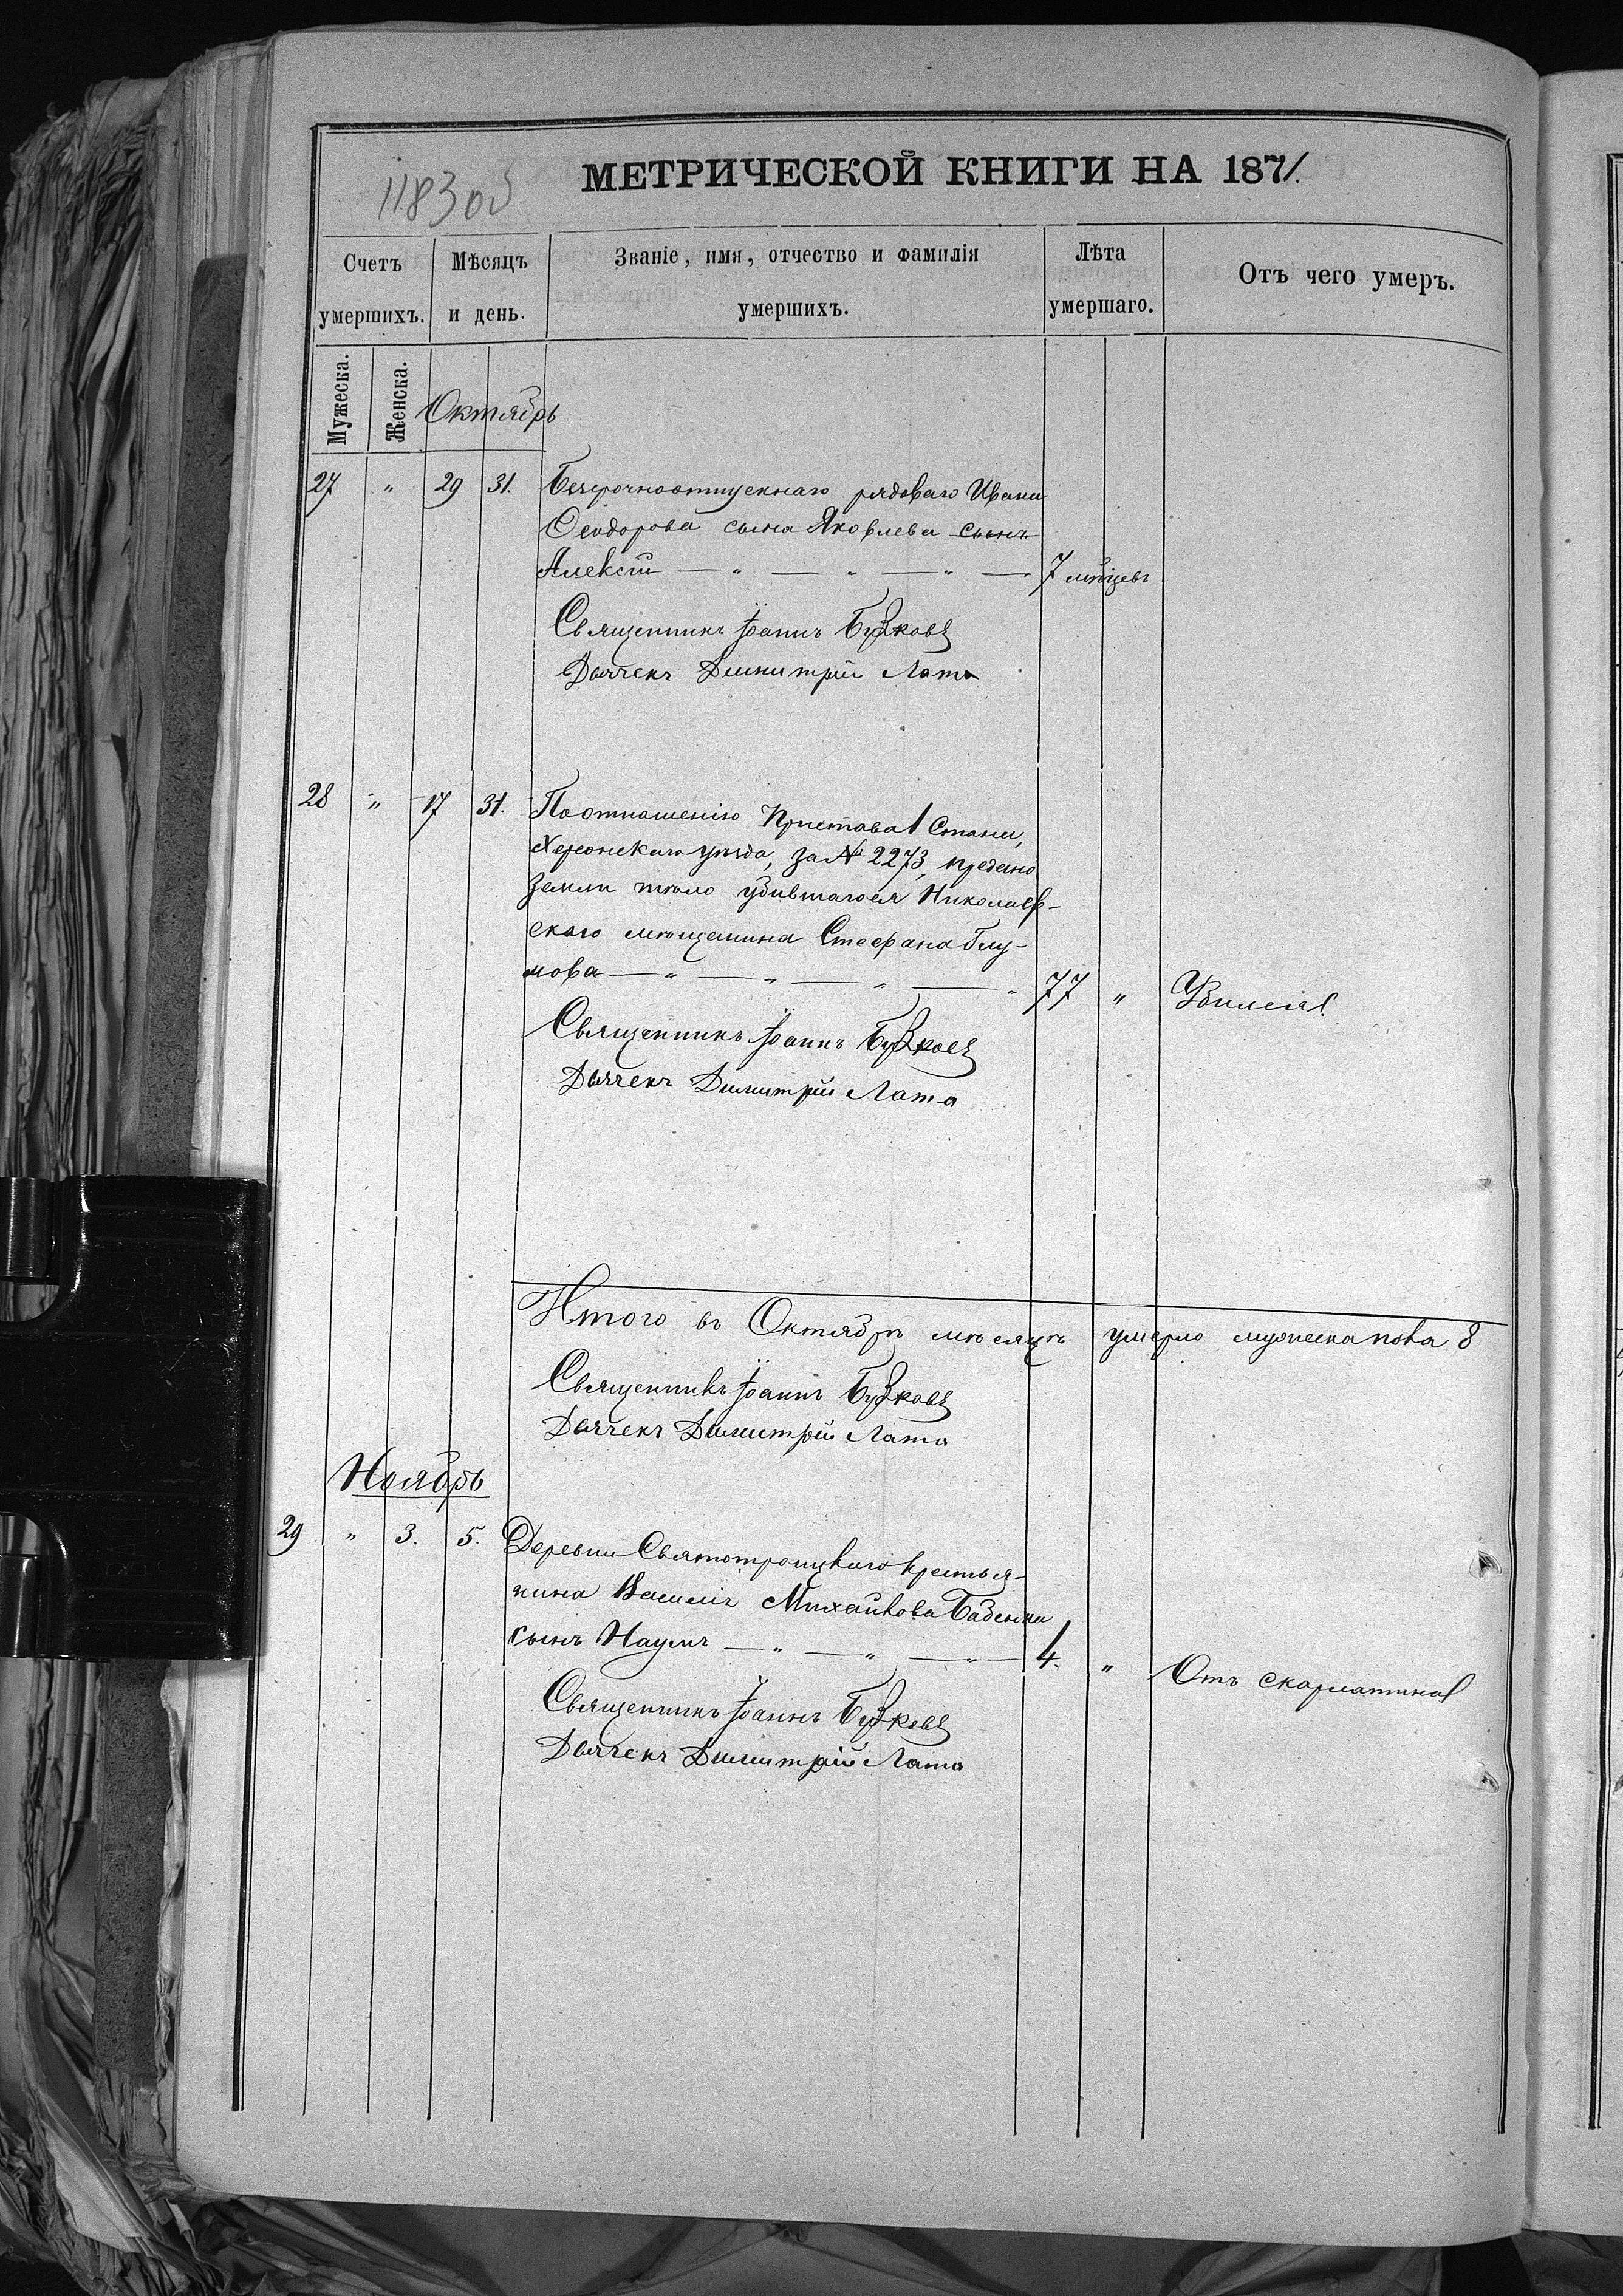 МЕТРИЧЕСКОЙ КНИГИ НА 1871.
118 305
Счетъ умершихъ.
Мѣсяцъ и день.
Званіе, имя, отчество и фамилія умершихъ.
Лѣта умершаго.
Отъ чего умеръ.
Мужеска.
Женска.
Октябрь
27 " 29 31. Безсрочноотпускнаго рядоваго Ивана
Ѳеодорова сына Яковлева сынъ
Алексѣй — " — " — " — 7 мѣсяцевъ
Священникъ Іоаннъ Бузковъ
Дьячекъ Димитрій Лата
28 " 17 31. По отношенію Пристава 1 Стана,
Херсонскаго уѣзда, за № 2273, предано
земли тѣло убившагося Николаев-
скаго мѣщанина Стефана
мова — " — " — " — " 77 " Убился
Священникъ Іоаннъ Бузковъ
Дьячекъ Димитрій Лата
Итого въ Октябрѣ мѣсяцѣ умерло мужеска пола 8
Священникъ Іоаннъ Бузковъ
Дьячекъ Димитрій Лата
Ноябрь
29 " 3. 5. Деревни Святотроицкаго крестья-
нина Василія Михайлова Баденка
сынъ Наумъ — " — " — " — 4. " Отъ скарлатины
Священникъ Іоаннъ Бузковъ
Дьячекъ Димитрій Лата